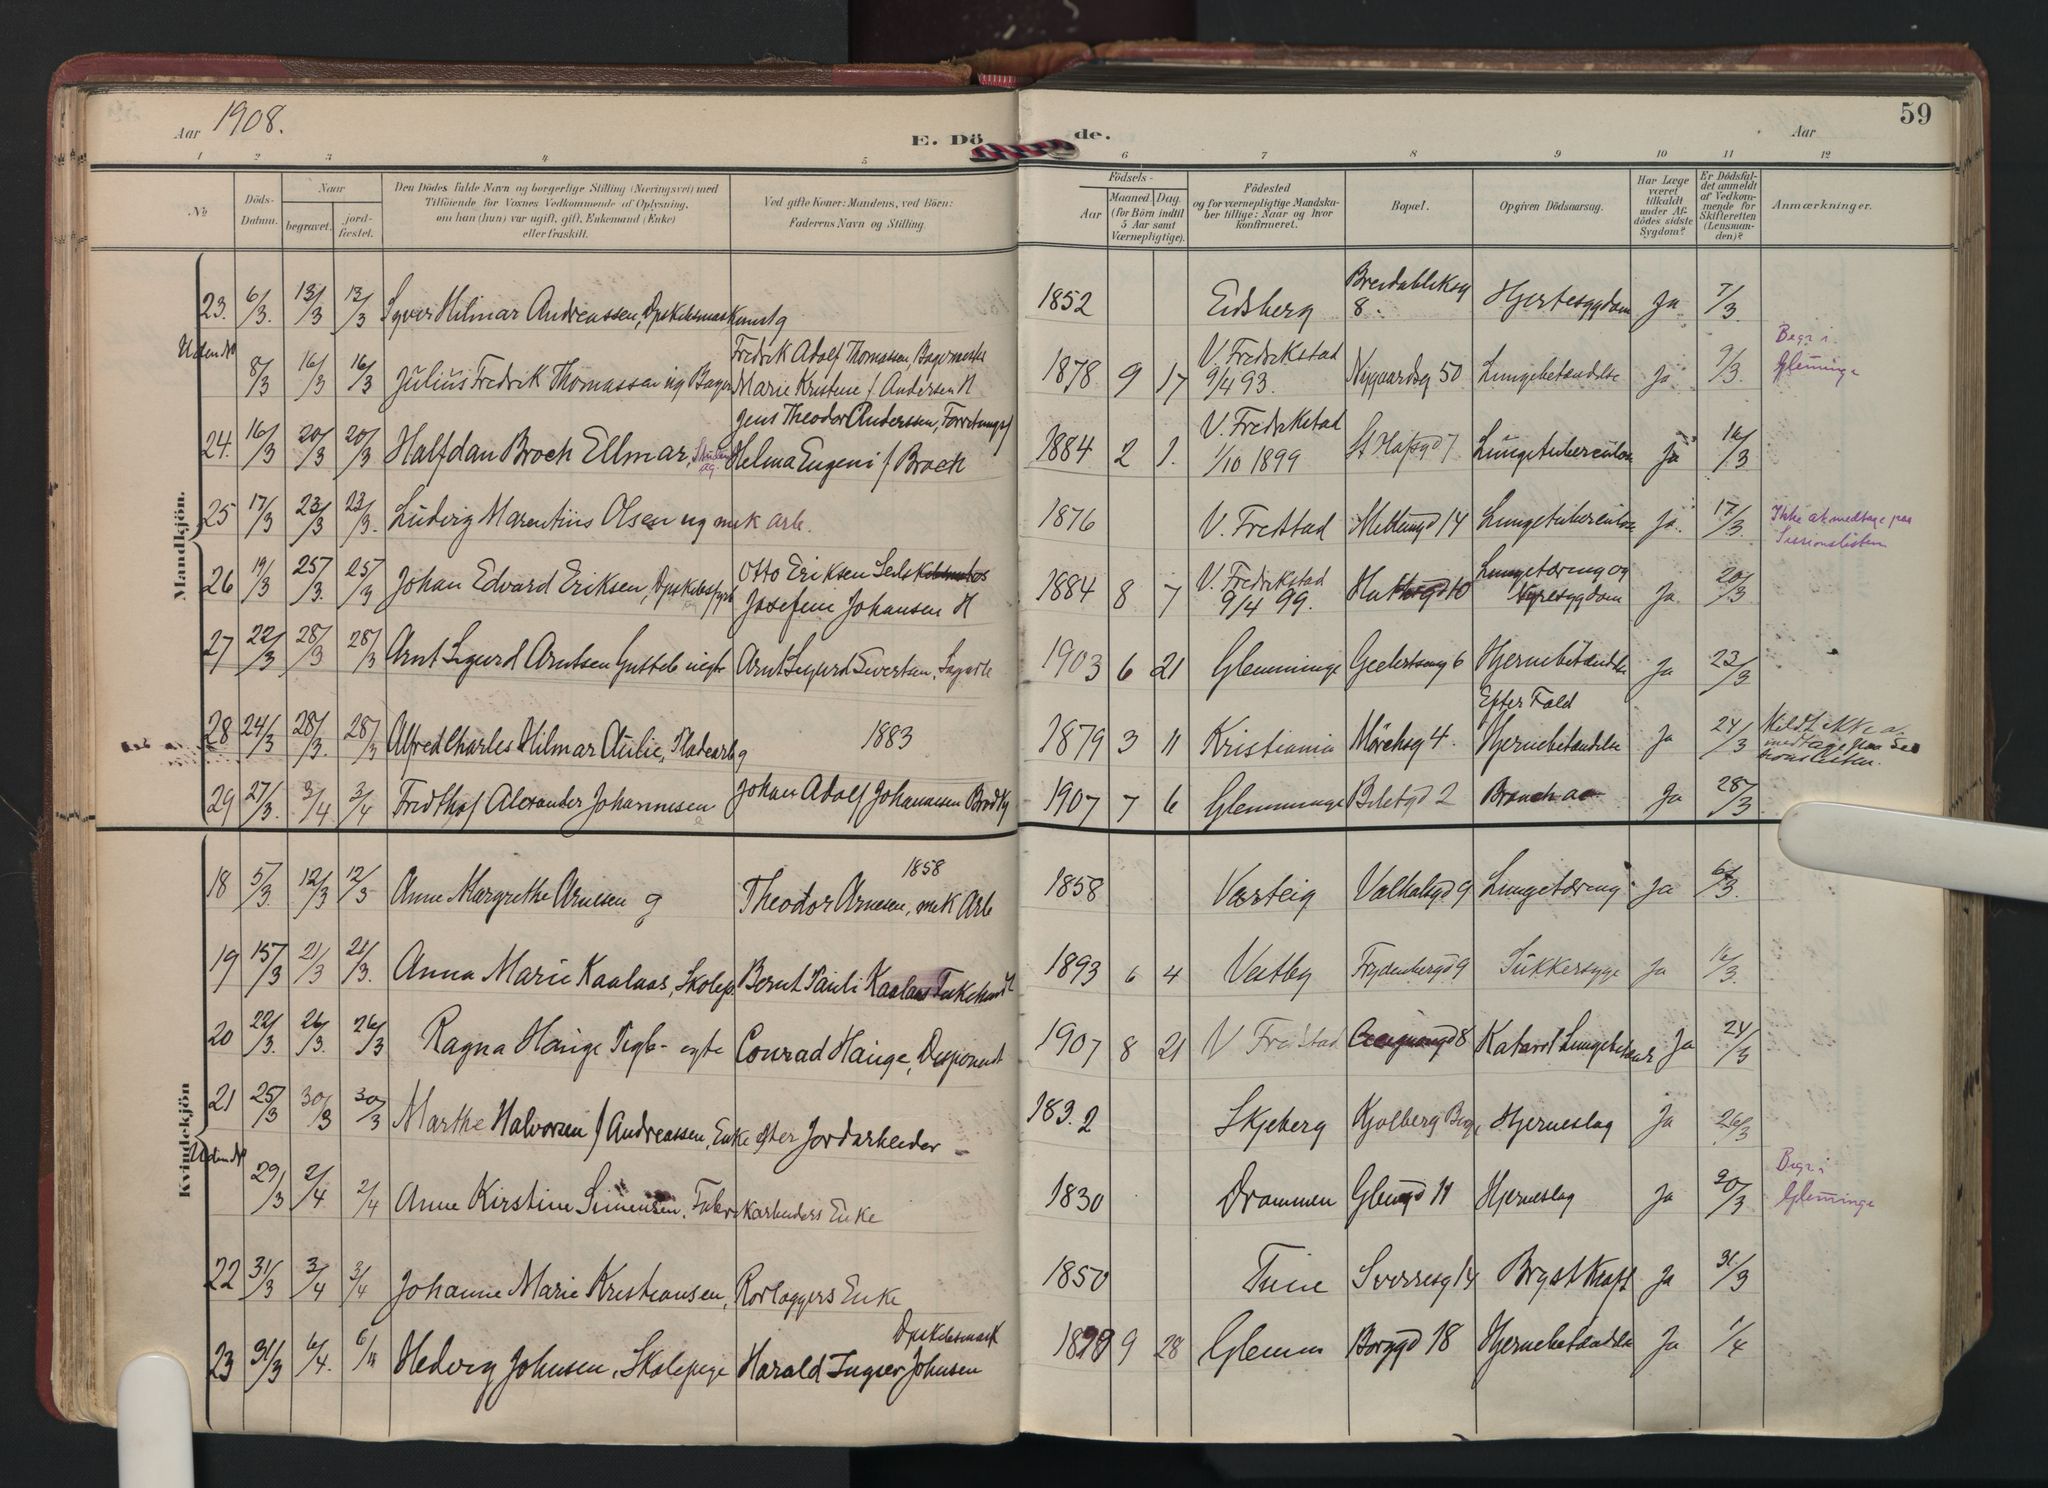 Aar 1908.
E. Döde.
Aar
59
1 2 3 4 5 6 7 8 9 10 11 12
No
Döds-Datum.
Naar
begravet.
jord-fæstet.
Den Dödes fulde Navn og borgerlige Stilling (Næringsvei) med
Tilföiende for Voxnes Vedkommende af Oplysning,
om han (hun) var ugift, gift, Enkemand (Enke)
eller fraskilt.
Ved gifte Koner: Mandens, ved Börn:
Faderens Navn og Stilling.
Födsels-
Aar
Maaned. Dag.
(for Börn indtil
5 Aar samt
Værnepligtige).
Födested
og for værnepligtige Mandska-
ber tillige: Naar og hvor
konfirmeret.
Bopæl.
Opgiven Dödsaarsag.
Har Læge
været
tilkaldt
under Af-
dödes sidste
Sygdom?
Er Dödsfal-
det anmeldt
af Vedkom-
mende for
Skifteretten
(Lensman-
den)?
Anmærkninger.
Mandkjön.
23. 6/3. 13/3 13/3 Syver Hilmar Andreassen, g 1852 Eidsberg Breidabliksg 8. Hjertesygdom Ja 7/3.
Uden No 8/3 16/3 16/3 Julius Fredrik Thomassen ug Bager
Fredrik Adolf Thomassen Bagermester
Marie Kristine f Andersen
1878 9 17 V. Fredrikstad 9/4 93. Nygaardsg 50 Lungebetændelse Ja 9/3. Begr i Glemminge
24. 16/3 20/3 20/3 Halfdan Broch Ellmar, Student ug
Jens Theodor Anderssen,
Helma Eugeni f Broch
1884 2 1. V. Fredrikstad 1/10 1899 St Olafsgd 7 Lungetuberculose Ja 16/3
25 17/3 23/3 23/3. Ludvig Marentius Olsen ug mek arb. 1876 V. Fredstad 14 Lungetuberculose Ja. 17/3. Ikke at medtage paa
Sessionslisten
26 19/3 25/3. 25/3 Johan Edvard Eriksen,
Otto Eriksen
Josefine Johansen
1884 8 7 V. Fredrikstad 9/4 99. Lungetæring og
Nyresygdom Ja 20/3
27 22/3 28/3 28/3 Arnt Sigurd Arntsen Gutteb Arnt Sigurd Sivertsen, 1903 6 21 Glemminge 6 Hjernebetændelse Ja 23/3
28 24/3 28/3. 28/3 Alfred Charles Hilmar Aulie, Pladearb g 1883 1879 3 11 Kristiania 4. Efter Fald
Hjernebetændelse Ja 24/3 ikke at
medtage paa Ses
sionslisten.
29 27/3. 3/4 3/4 Fridthjof Alexander Johannesen Johan Adolf Johannesen 1907 7 6 Glemminge 2 Ja 28/3
Kvindekjön
18 5/3. 12/3 12/3 Anne Margrethe Arnesen g 1858
Theodor Arnesen, mek Arb 1858 Varteig Valhalsgd 9 Lungetæring Ja 6/3.
19 15/3 21/3 21/3. Anna Marie Kaalaas, Skolep. Bernt Pauli Kaalaas 1893 6 4 Vestby Frydenbergd 9 Sukkersyge Ja 16/3.
20 22/3. 26/3. 26/3 Ragna Hauge Pigb- egte Conrad Hauge, Disponent 1907 8 21 V Fredstad 8 Katarrl Lungebetænd Ja 24/3
21 25/3 30/3 30/3 Marthe Halvorsen f Andreassen, Enke efter Jordarbeider 1832 Skjeberg Kjølberg Hjerneslag Ja 26/3
Uden No 29/3 2/4 2/4 Anne Kirstine Simensen, Fabrikarbeiders Enke 1830 Drammen 11 Hjerneslag Ja 30/3 Begr i
Glemminge
22 31/3 3/4 3/4 Johanne Marie Kristiansen, Rorlæggers Enke 1850 Tune Sverresg 14 Brystkræft Ja 31/3
23 31/3 6/4. Hedvig Johnsen, Skolepige Harald Ingver Johnsen 9 28 Glemm Borggd 18 Hjernebetændelse Ja 1/4